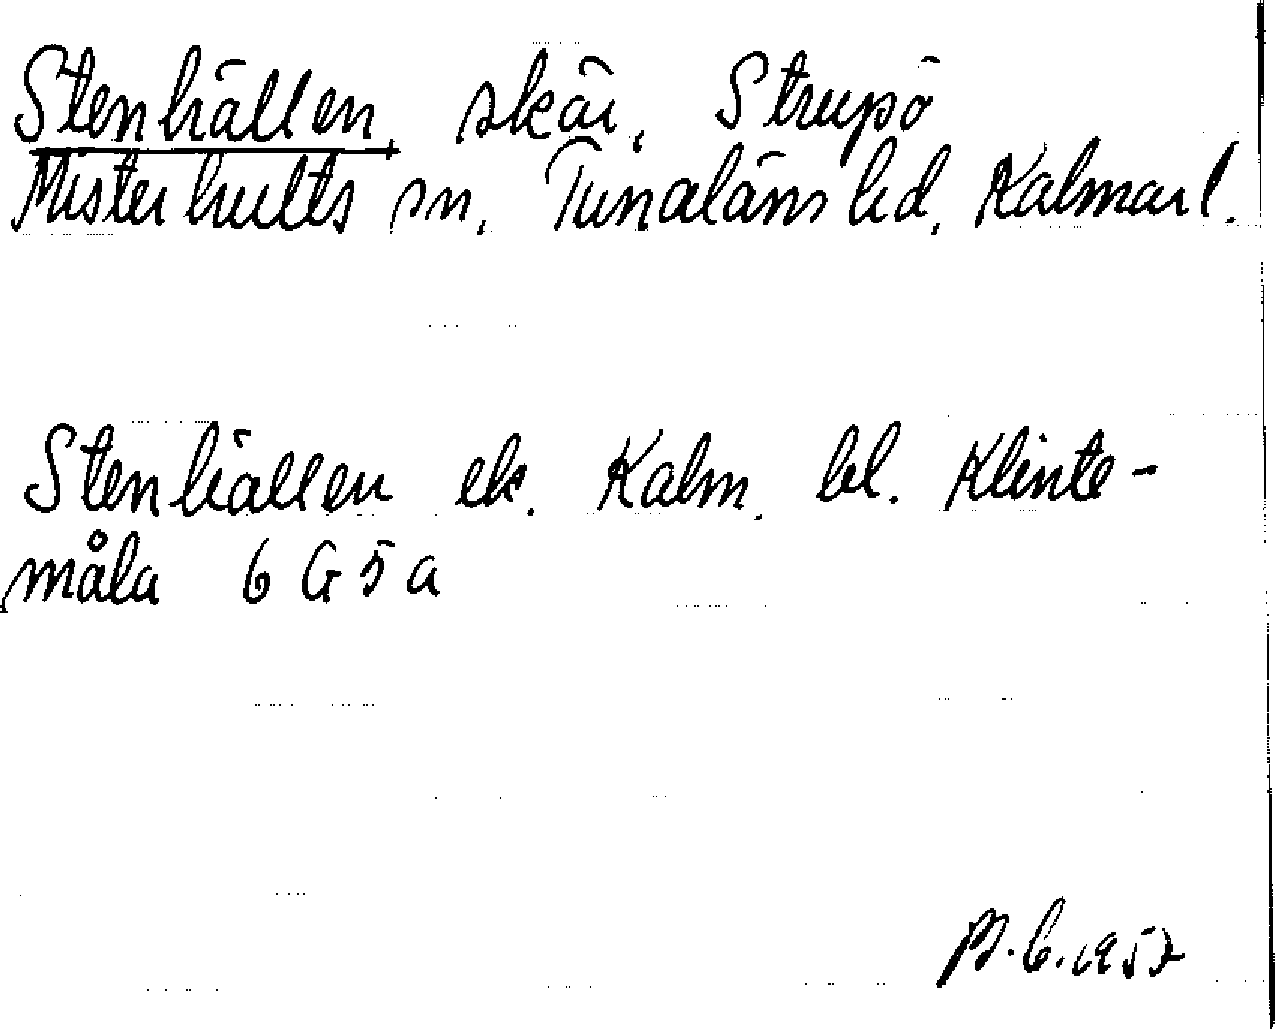 Stenhällen, skär, Strupö
Misterhults sn, Tunaläns hd, Kalmar l.
Stenhällen ek. Kalm. bl. Klinte-
måla 6 G 5 a
B.C. 1957